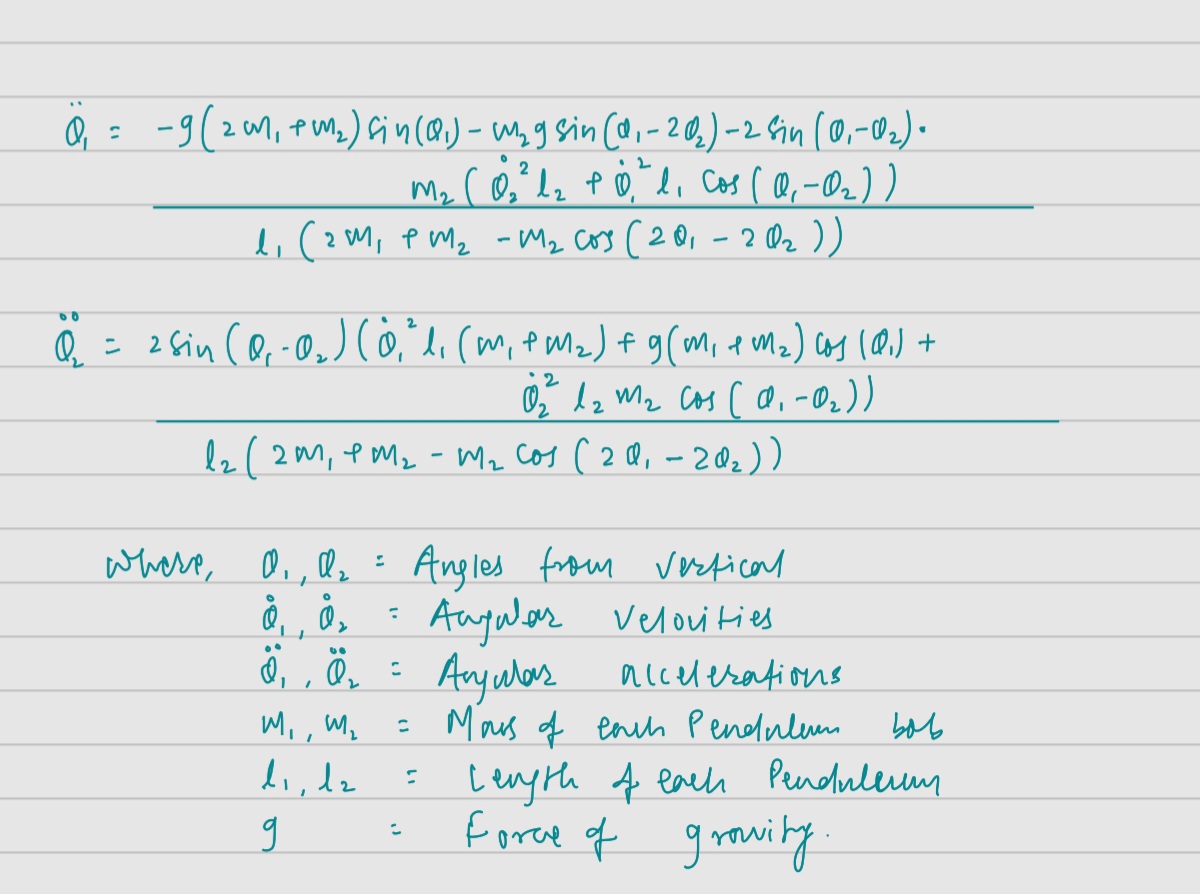 θ̈₁ = -g(2m₁ + m₂) sin(θ₁) - m₂g sin(θ₁ - 2θ₂) - 2 sin(θ₁ - θ₂)·
m₂(θ̇₂² l₂ + θ̇₁² l₁ cos(θ₁ - θ₂))
l₁(2m₁ + m₂ - m₂ cos(2θ₁ - 2θ₂))
θ̈₂ = 2 sin(θ₁ - θ₂)(θ̇₁² l₁(m₁ + m₂) + g(m₁ + m₂) cos(θ₁) +
θ̇₂² l₂ m₂ cos(θ₁ - θ₂))
l₂(2m₁ + m₂ - m₂ cos(2θ₁ - 2θ₂))
where, θ₁, θ₂ = Angles from vertical
θ̇₁, θ̇₂ = Angular velocities
θ̈₁, θ̈₂ = Angular accelerations
m₁, m₂ = Mass of each Pendulum bob
l₁, l₂ = Length of each Pendulum
g = Force of gravity.